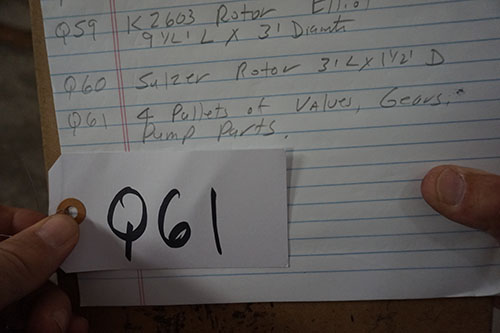 Q59 K2603 Rotor Elliot
9 1/2' L x 3' Diamtr
Q60 Sulzer Rotor 3' L x 1 1/2' D
Q61 4 Pallets of Values, Gears,
Pump Parts.
Q61